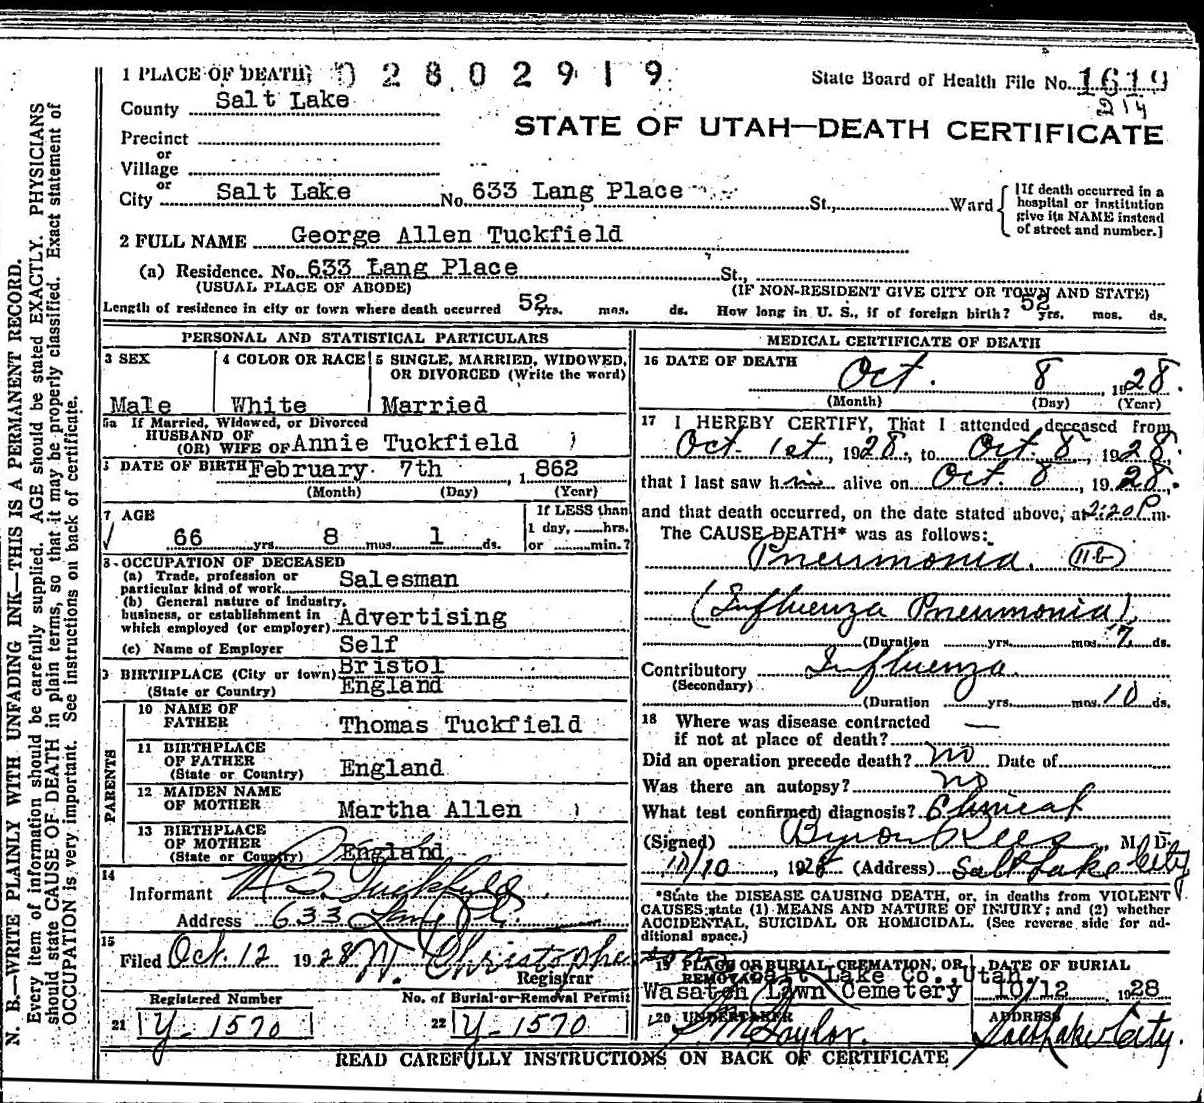 1 PLACE OF DEATH: 0 2 8 0 2 9 1 9
State Board of Health File No. 1619
214
County Salt Lake
STATE OF UTAH—DEATH CERTIFICATE
Precinct
or
Village
or
City Salt Lake No. 633 Lang Place St., Ward
[If death occurred in a
hospital or institution
give its NAME instead
of street and number.]
2 FULL NAME George Allen Tuckfield
(a) Residence. No. 633 Lang Place St.,
(USUAL PLACE OF ABODE) (IF NON-RESIDENT GIVE CITY OR TOWN AND STATE)
Length of residence in city or town where death occurred 52 yrs. mos. ds. How long in U. S., if of foreign birth? 52 yrs. mos. ds.
PERSONAL AND STATISTICAL PARTICULARS
3 SEX 4 COLOR OR RACE 5 SINGLE, MARRIED, WIDOWED,
OR DIVORCED (Write the word)
Male White Married
5a If Married, Widowed, or Divorced
HUSBAND OF
(OR) WIFE OF Annie Tuckfield
DATE OF BIRTH February 7th, 1862
(Month) (Day) (Year)
7 AGE If LESS than
1 day, ......hrs.
66 yrs. 8 mos. 1 ds. or ......min.?
8 OCCUPATION OF DECEASED
(a) Trade, profession or
particular kind of work Salesman
(b) General nature of industry,
business, or establishment in
which employed (or employer) Advertising
(c) Name of Employer Self
9 BIRTHPLACE (City or town) Bristol
(State or Country) England
PARENTS
10 NAME OF
FATHER Thomas Tuckfield
11 BIRTHPLACE
OF FATHER
(State or Country) England
12 MAIDEN NAME
OF MOTHER Martha Allen
13 BIRTHPLACE
OF MOTHER
(State or Country) England
14
Informant Tuckfield
Address 633 Lang Pl.
15
Filed Oct. 12 1928 W. Christopherson
Registrar
Registered Number No. of Burial or Removal Permit
21 Y-1570 22 Y-1570
MEDICAL CERTIFICATE OF DEATH
16 DATE OF DEATH
Oct. 8, 1928.
(Month) (Day) (Year)
17 I HEREBY CERTIFY, That I attended deceased from
Oct. 1st, 1928, to Oct. 8, 1928,
that I last saw him alive on Oct. 8, 1928,
and that death occurred, on the date stated above, at 2:20 P.m.
The CAUSE DEATH* was as follows:
Pneumonia. 11b
(Influenza Pneumonia)
(Duration yrs. mos. 7 ds.
Contributory Influenza
(Secondary)
(Duration yrs. mos. 10 ds.
18 Where was disease contracted
if not at place of death? —
Did an operation precede death? no Date of
Was there an autopsy? no
What test confirmed diagnosis? Clinical
(Signed) Byron Rees, M. D.
10/10, 1928 (Address) Salt Lake City
*State the DISEASE CAUSING DEATH, or, in deaths from VIOLENT
CAUSES state (1) MEANS AND NATURE OF INJURY; and (2) whether
ACCIDENTAL, SUICIDAL OR HOMICIDAL. (See reverse side for ad-
ditional space.)
19 PLACE OR BURIAL, CREMATION, OR
REMOVAL Salt Lake Co., Utah DATE OF BURIAL
Wasatch Lawn Cemetery 10/12 1928
20 UNDERTAKER ADDRESS
S. M. Taylor. Salt Lake City.
READ CAREFULLY INSTRUCTIONS ON BACK OF CERTIFICATE
N. B.—WRITE PLAINLY WITH UNFADING INK—THIS IS A PERMANENT RECORD.
Every item of information should be carefully supplied. AGE should be stated EXACTLY. PHYSICIANS
should state CAUSE OF DEATH in plain terms, so that it may be properly classified. Exact statement of
OCCUPATION is very important. See instructions on back of certificate.